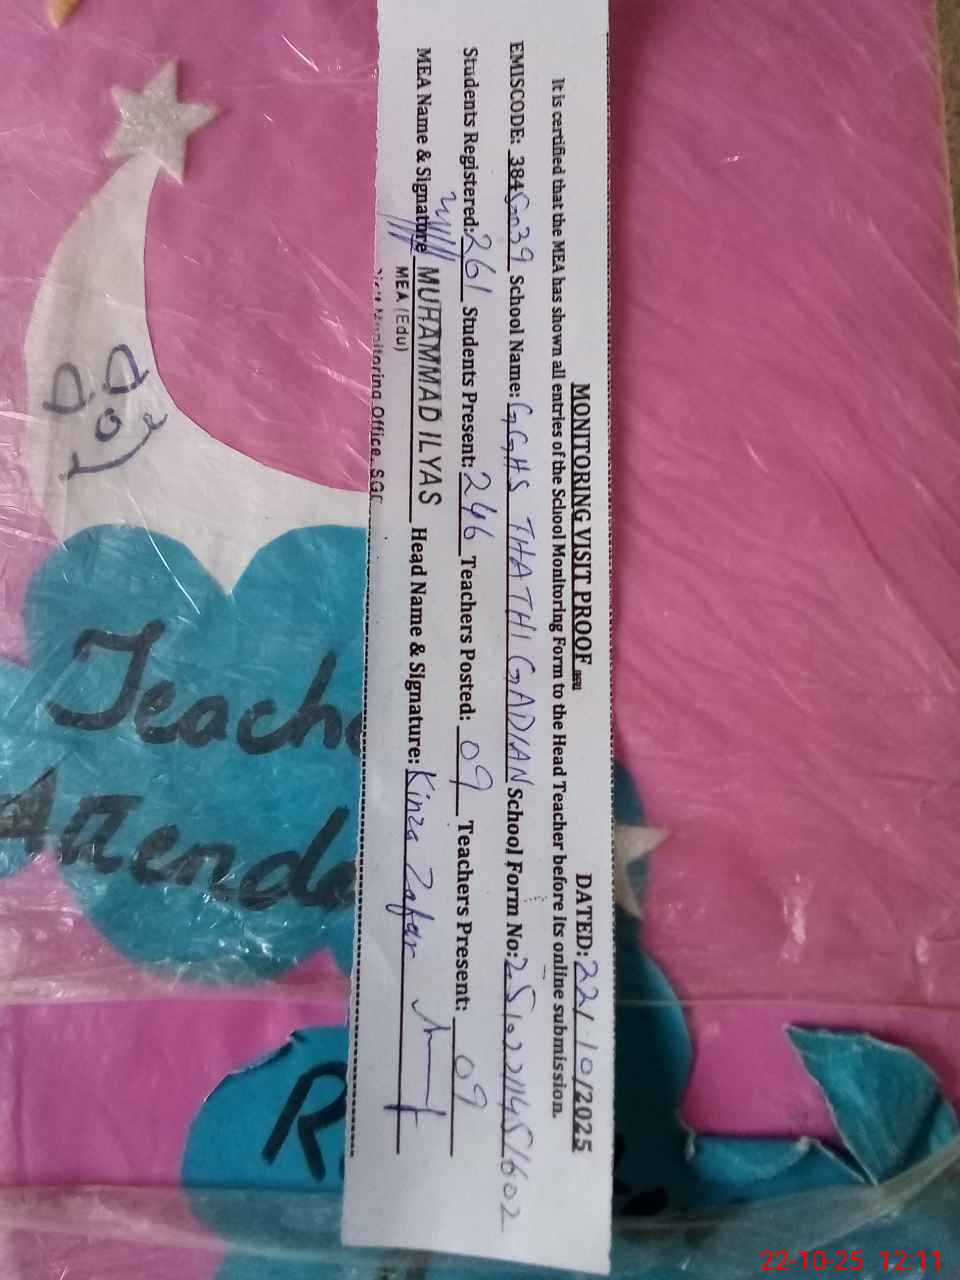 MONITORING VISIT PROOF DATED: 22/10/2025
It is certified that the MEA has shown all entries of the School Monitoring Form to the Head Teacher before its online submission.
EMISCODE: 38450039 School Name: GGHS THATHI GADIAN School Form No: 25102211451602
Students Registered: 261 Students Present: 246 Teachers Posted: 09 Teachers Present: 09
MEA Name & Signature MUHAMMAD ILYAS Head Name & Signature: Kinza Zafar
MEA (Edu)
Monitoring Office, SGD
Teache
Attenda
R
22-10-25 12:11